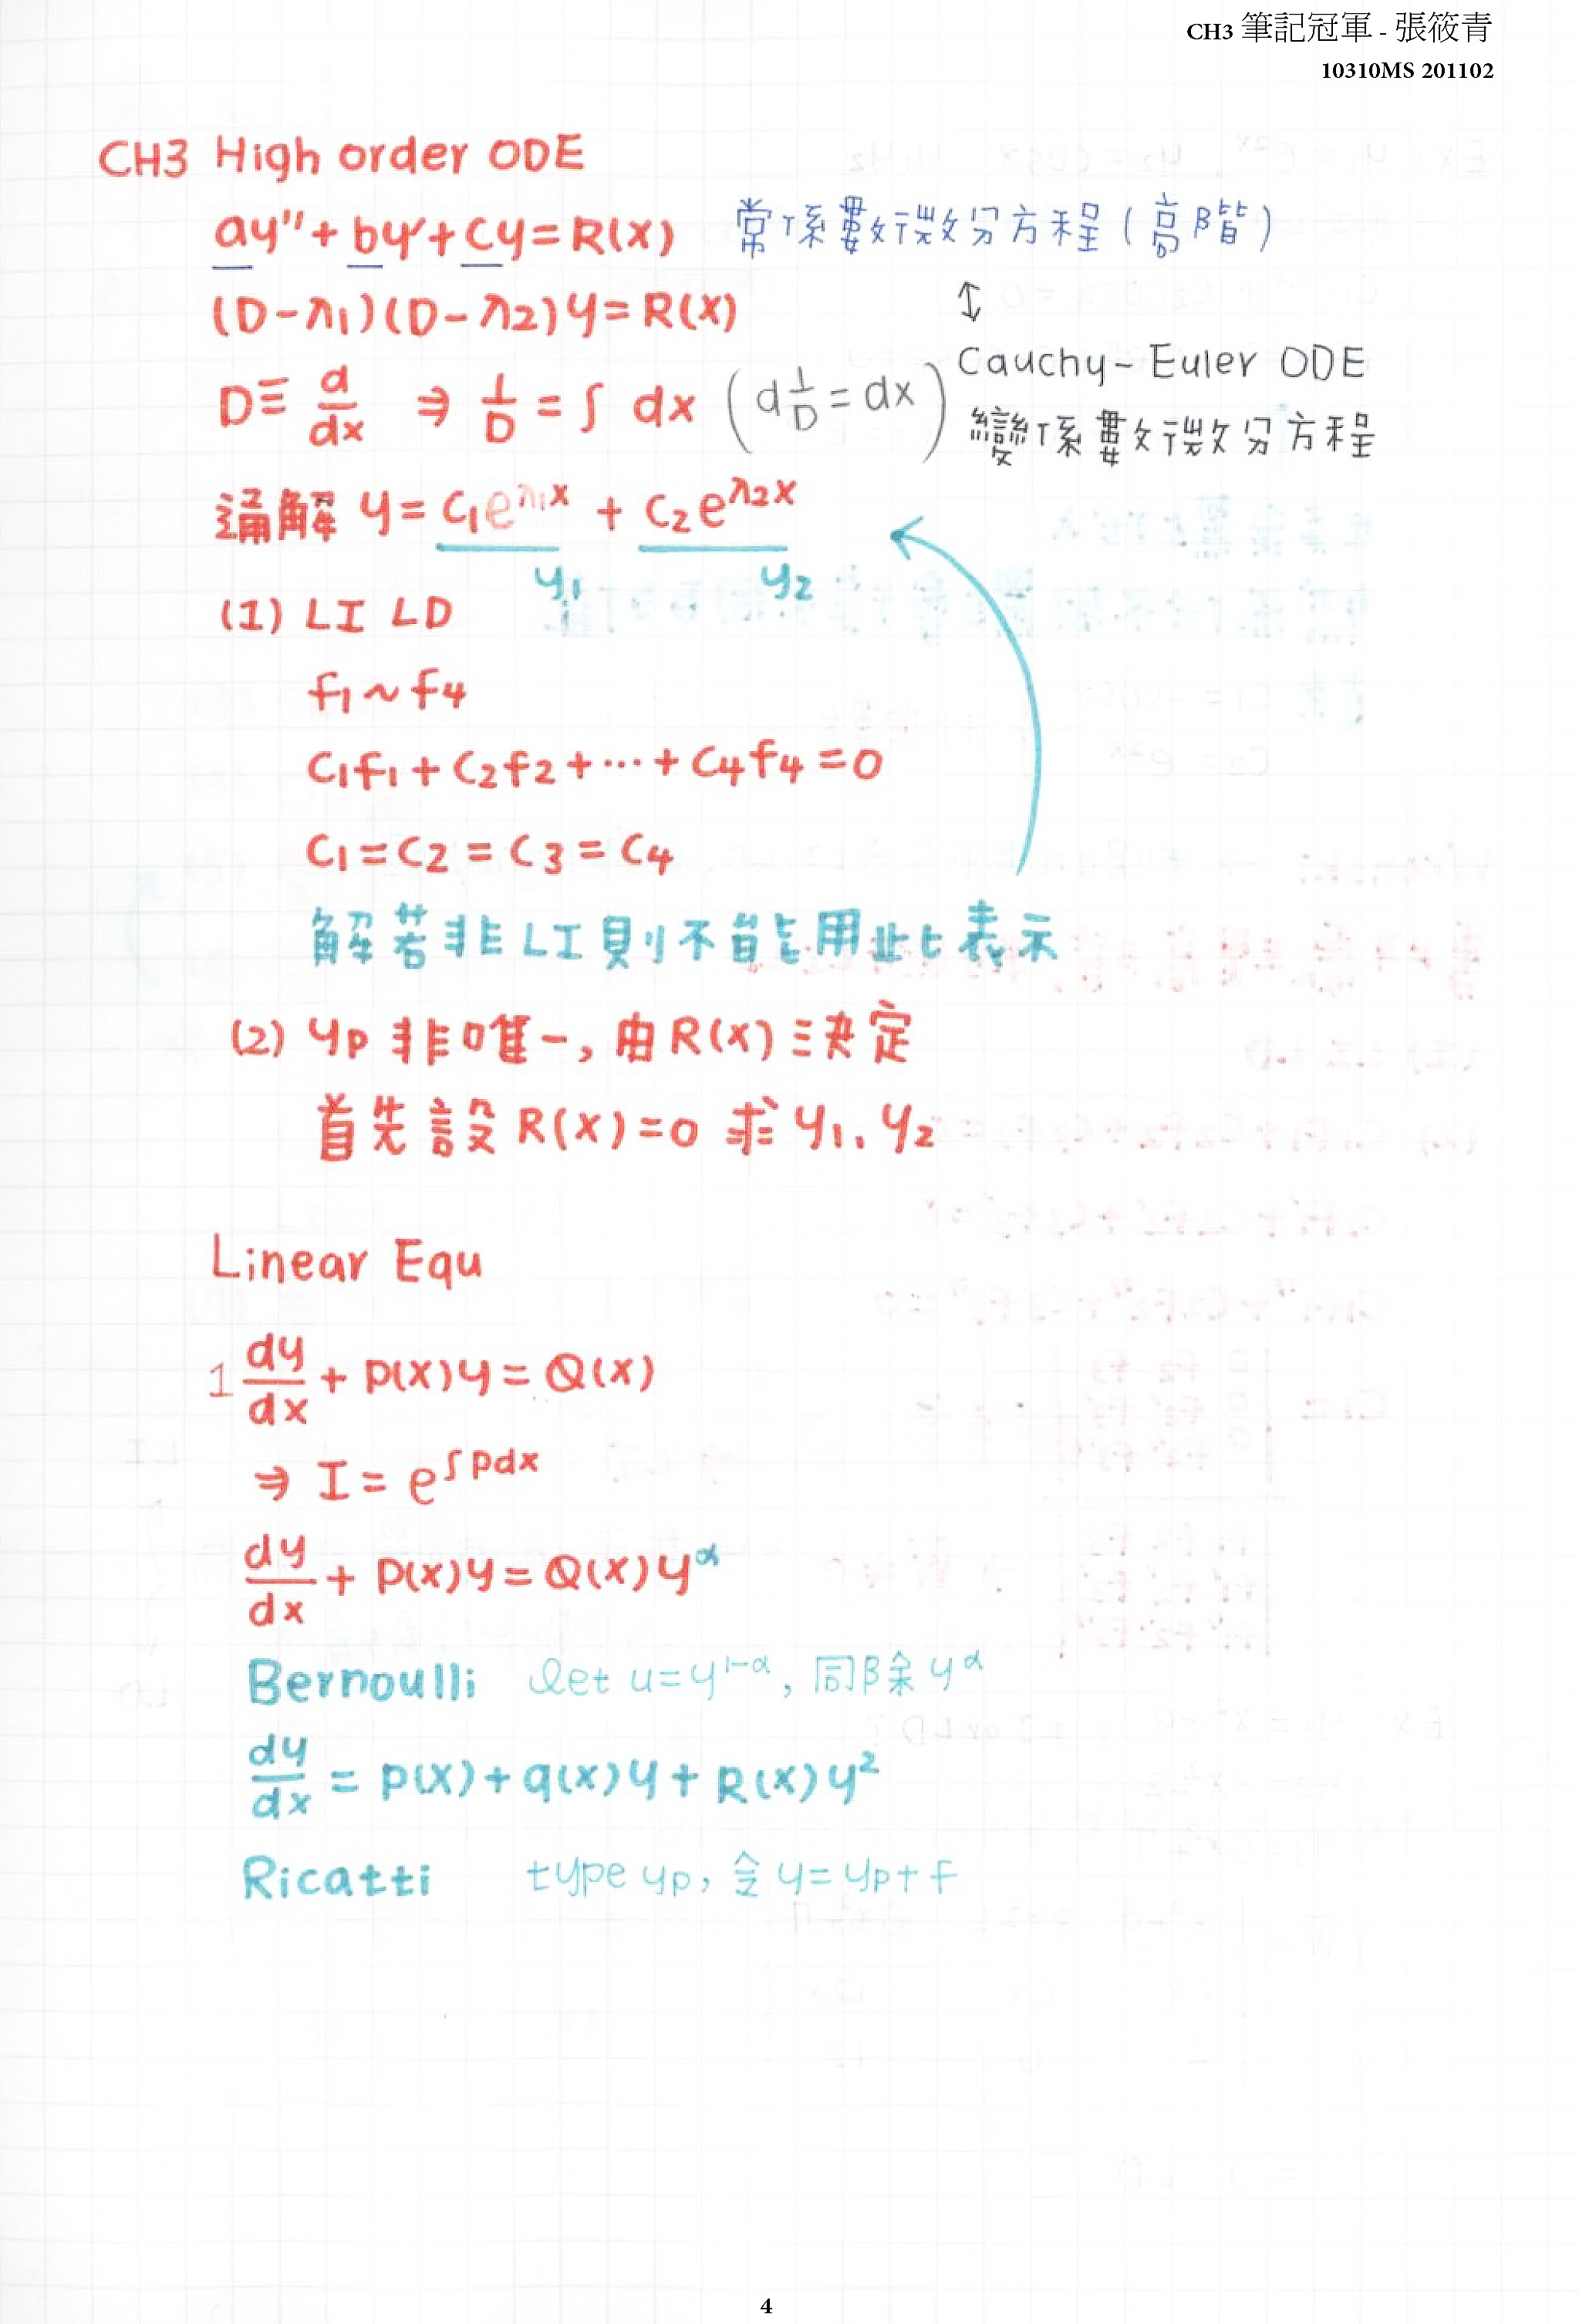 CH3 筆記冠軍 - 張筱青
10310MS 201102
CH3 High order ODE
ay"+by'+cy=R(x) 常係數微分方程(高階)
(D-λ1)(D-λ2)y=R(x) ↕
D≡d/dx ⇒ 1/D=∫ dx (d 1/D=dx) Cauchy-Euler ODE
變係數微分方程
通解 y=c1e^λ1x + c2e^λ2x
y1 y2
(1) LI LD
f1~f4
c1f1+c2f2+…+c4f4=0
c1=c2=c3=c4
解若非LI則不能用此表示
(2) yp 非唯一,由R(x)決定
首先設R(x)=0 求y1、y2
Linear Equ
1 dy/dx + p(x)y=Q(x)
⇒ I=e^∫pdx
dy/dx + p(x)y=Q(x)y^α
Bernoulli let u=y^1-α, 同除y^α
dy/dx = p(x)+q(x)y+R(x)y²
Ricatti type yp, 令y=yp+f
4